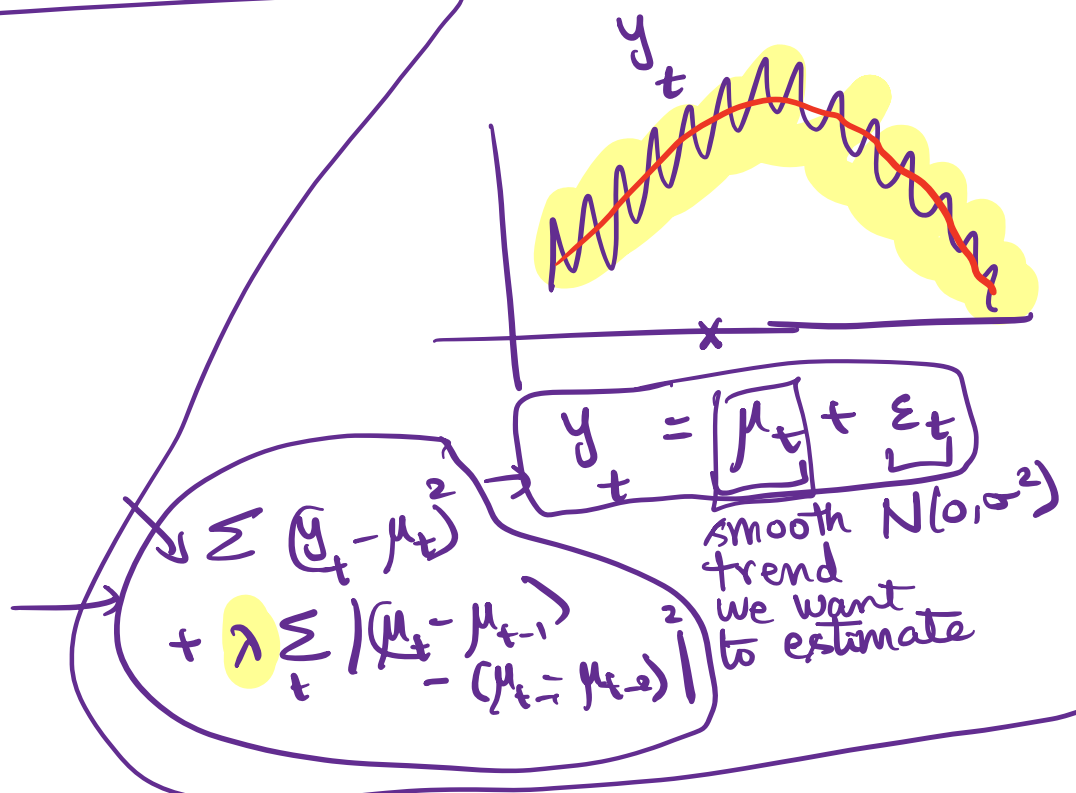 y_t
x
y_t = μ_t + ε_t
smooth N(0,σ²)
trend
we want
to estimate
Σ (y_t - μ_t)²
+ λ Σ_t |(μ_t - μ_{t-1})
- (μ_{t-1} - μ_{t-2})|²